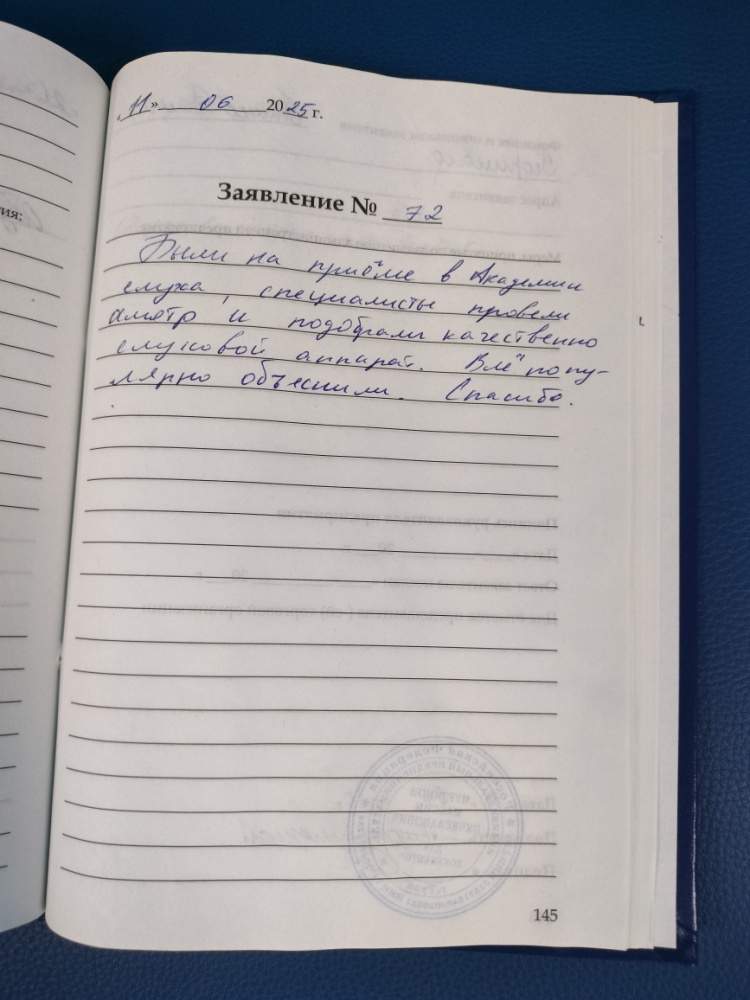 „11» 06 2025 г.
Заявление № 72
Были на приёме в Академии
слуха, специалисты провели
осмотр и подобрали качественно
слуховой аппарат. Всё попу-
лярно объяснили. Спасибо.
145